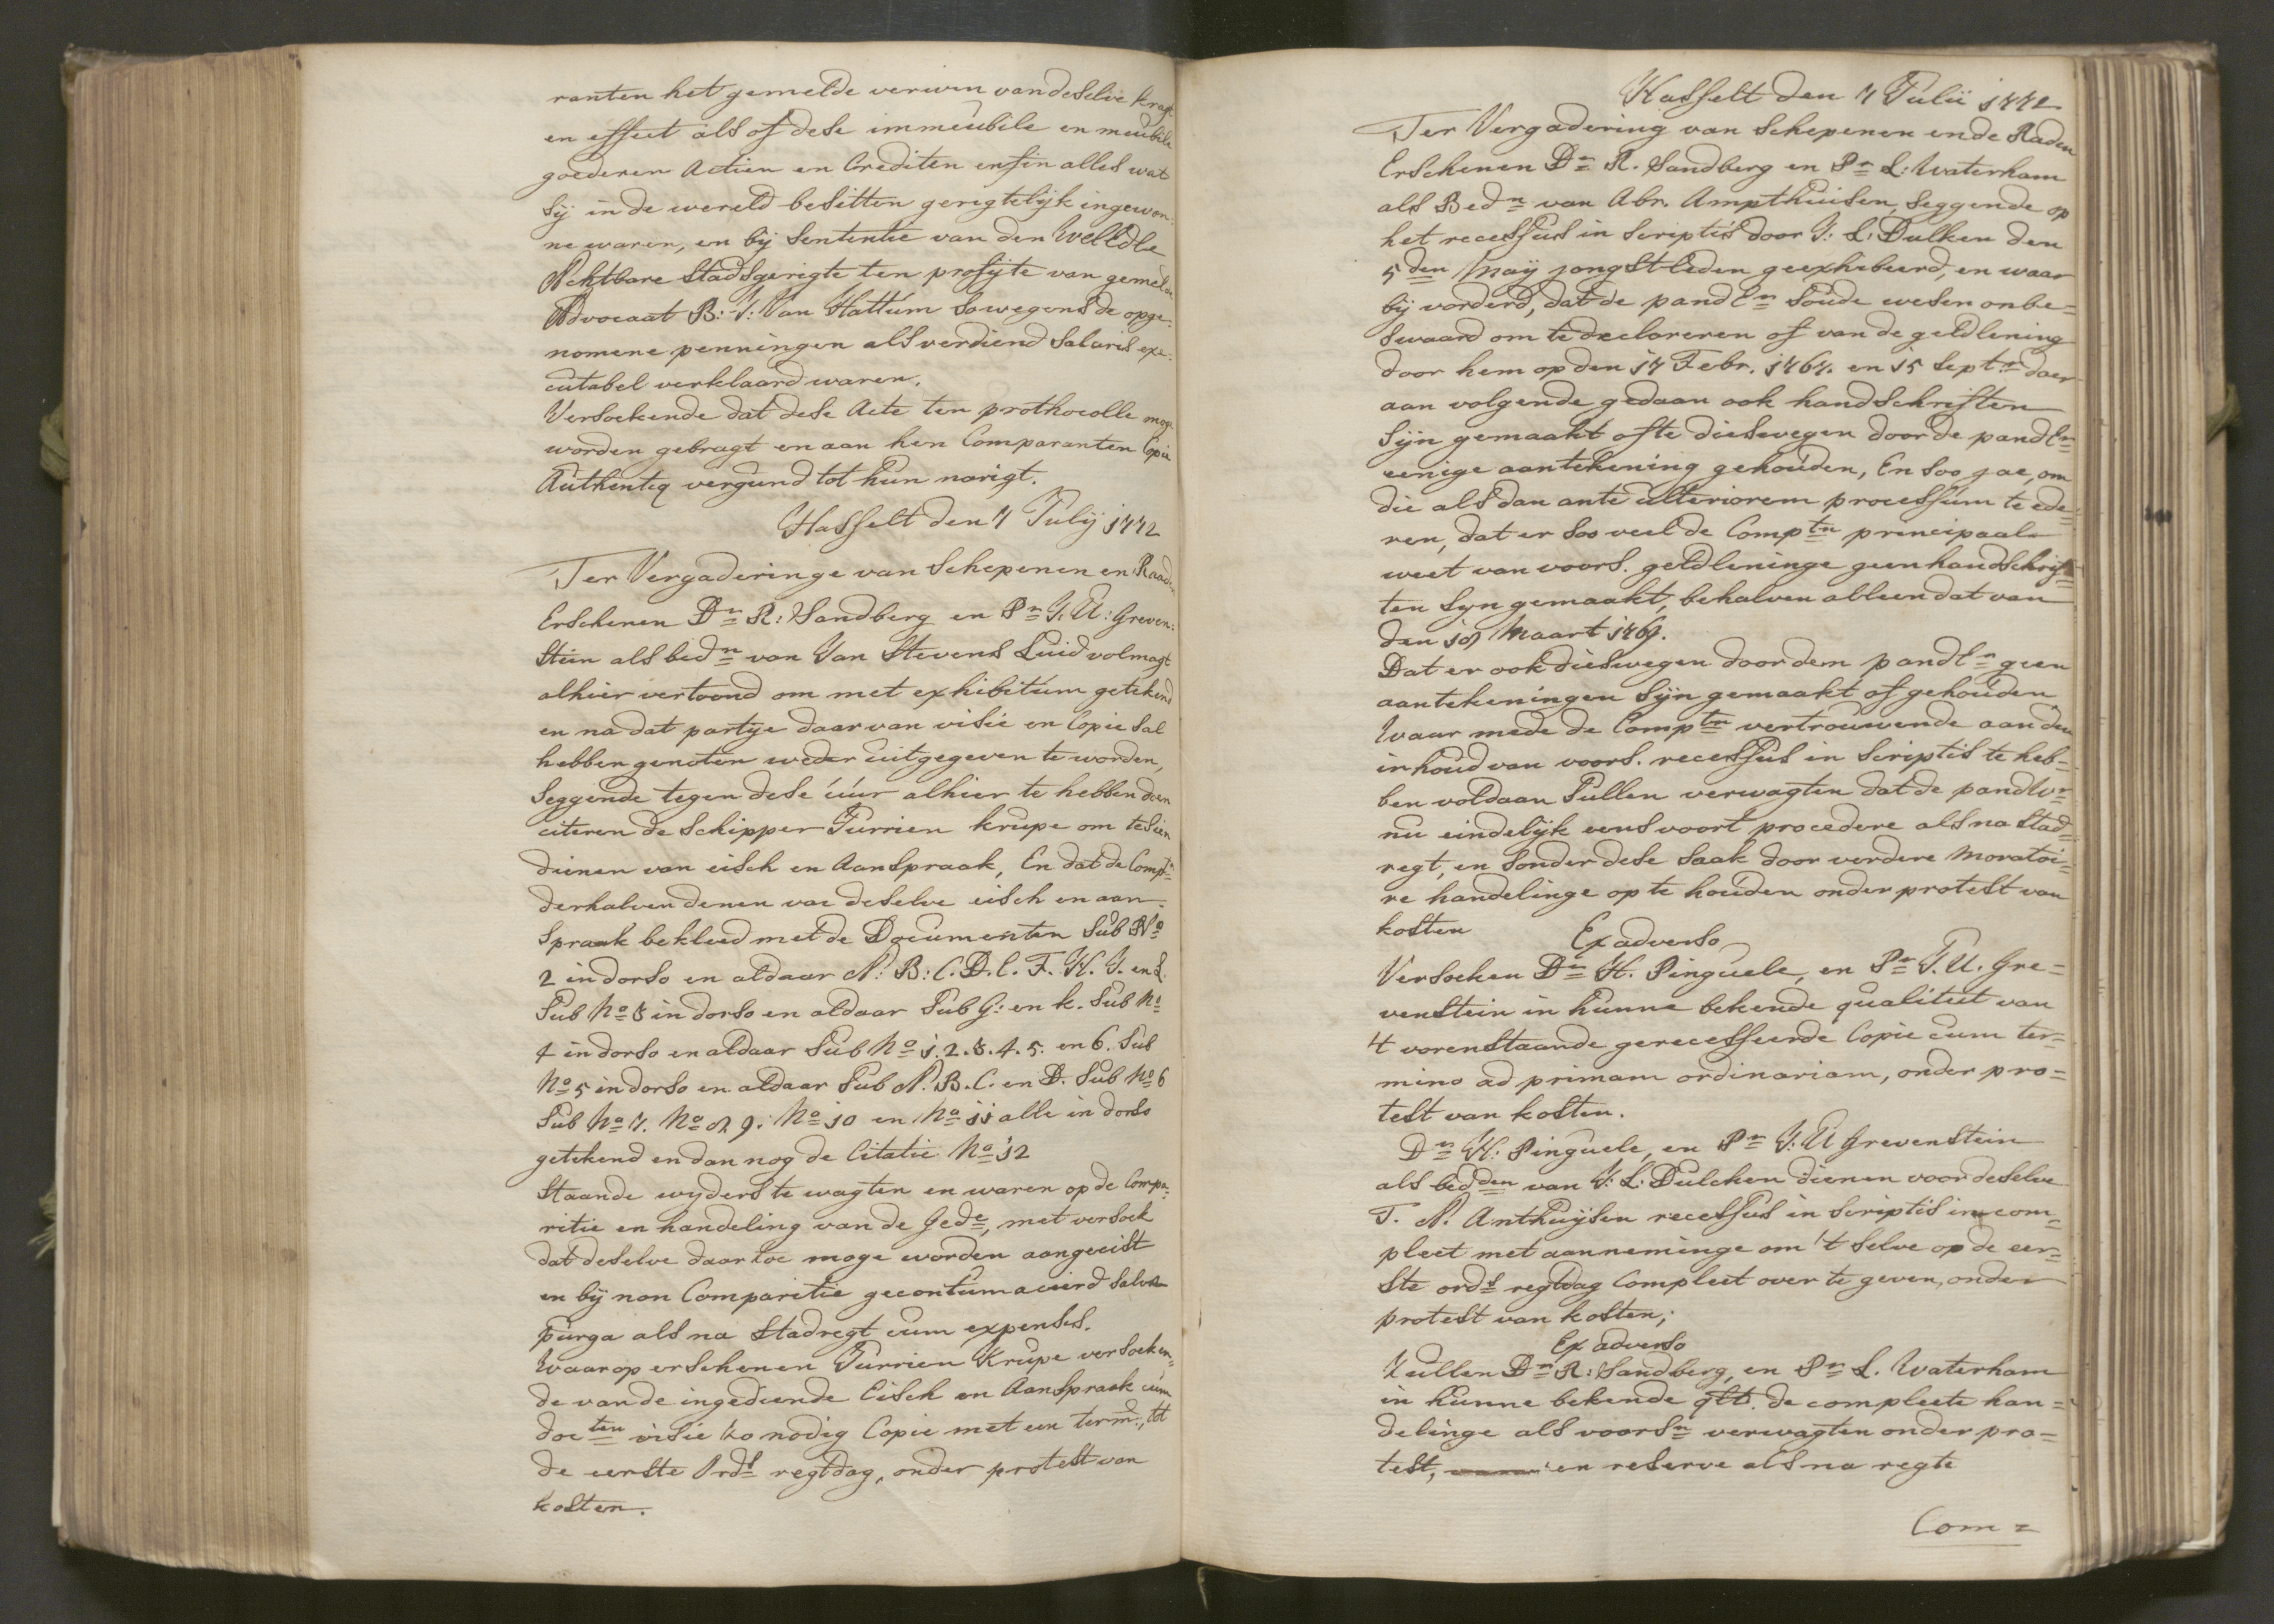 ranten het gemelde verwin van deselve kragt
en effect als of dese immeubile en meubile
goederen Actien en Crediten ensin alles wat
sÿ in de wereld besitten gerigtelÿk ingewon:
ne waren, en bÿ Sententie van den WelEdle
Achtbare Stadsgerigte ten profÿte van gemelde
Advocaat B: J: Van Hattum so wegens de opge:
nomene penningen als verdiend Salaris exe:
cutabel verklaard waren.
Versoekende dat dese Acte ten prothocolle moge
worden gebragt en aan hen Comparanten Copie
Authentiq vergund tot hun narigt.
Hasselt den 7 Julÿ 1772
Ter Vergaderinge van Schepenen en Raaden
Erschenen Dr R: Sandberg en Pr J: U: Greven:
stein als bedn van Van Stevens Luid volmagt
alhier vertoond om met exhibitum getekend
en na dat partye daar van visie en Copie sal
hebben genoten weder uitgegeven te worden,
Seggende tegen dese úúr alhier te hebben doen
citeren de Schipper Jurrien krupe om te sien
dienen van eisch en Aanspraak, En dat de Comptn
derhalven denen van deselve eisch en aan:
spraak bekleed met de Documenten Sub No
2 in dorso en aldaar A: B: C. D. E. F. H. J. en L.
Sub No 3 in dorso en aldaar Sub G: en k. Sub No
4 in dorso en aldaar Sub No 1. 2. 3. 4. 5. en 6. Sub
No 5 in dorso en aldaar Sub A. B. C. en D. Sub No 6
Sub No 7. No 8. 9. No 10 en No 11 alle in dorso
getekend en dan nog de Citatie No 12
Staande wyders te wagten en waren op de Compa:
ritie en handeling van de Gede, met versoek
dat deselve daar toe moge worden aangeeist
en bÿ non Comparitie gecontumacieerd salva
purga als na Stadregt cum expensis.
Waar op erschenen Jurrien Krupe versoeken:
de van de ingediende Eisch en Aanspraak cum
docten visie zo nodig Copie met een term:, tot
de eerste Ords regtdag, onder protest van
kosten.
Hasselt den 7 Julii 1772
Ter Vergadering van Schepenen ende Raden
Erschenen Dr R. Sandberg en Pr L: Waterham
als Bedn van Abr. Ampthuisen, seggende op
het recessus in scriptis door J: L: Dulken den
5den Maÿ jongstleden geexhibeerd, en waar
bÿ vorderd, dat de pandEr soude wesen onbe=
swaard om te decloreren of van de geldlening
door hem op den 17 Febr. 1767. en 15 Septr daer
aan volgende gedaan ook handschriften
sÿn gemaakt ofte dieswegen door de pandEr
eenige aantekening gehouden, En soo jae, om
die als dan ante ulteriorem processum te ede=
ren, dat er soo veel de Comptn principaal
weet van voors. geldleninge geen handschrif=
ten syn gemaakt, behalven alleen dat van
den 18 Maart 1769.
Dat er ook dieswegen door den pandEr geen
aantekeningen sÿn gemaakt of gehouden
Waar mede de Comptn vertrouwende aan den
inhoud van voors. recessus in scriptis te heb=
ben voldaan Sullen verwagten dat de pandWr
nu eindelÿk eens voort procedere als na Stad=
regt, en sonder dese saak door verdere moratoi=
re handelinge op te houden onder protest van
kosten
Ex adverso
Versoeken Dr H. Pinguele, en Pr J. U. Gre=
venstein in hunne bekende qualiteit van
't vorenstaande gerecesseerde Copie cum ter=
mino ad primam ordinariam, onder pro=
test van kosten.
Dr H: Pinguele, en Pr J. U Grevenstein
als bedden van J: L: Dulcken dienen voor deselve
T. A. Anthuÿsen recessus in scriptis incom=
pleet met aanneminge om 't selve op de eer=
ste ords regtdag Compleet over te geven, onder
protest van kosten;
Ex adverso
Zullen Dr R: Sandberg, en Pr L. Waterham
in hunne bekende qltt. de compleete han=
delinge als voorsn verwagten onder pro=
test, en reserve als na regte
Com=